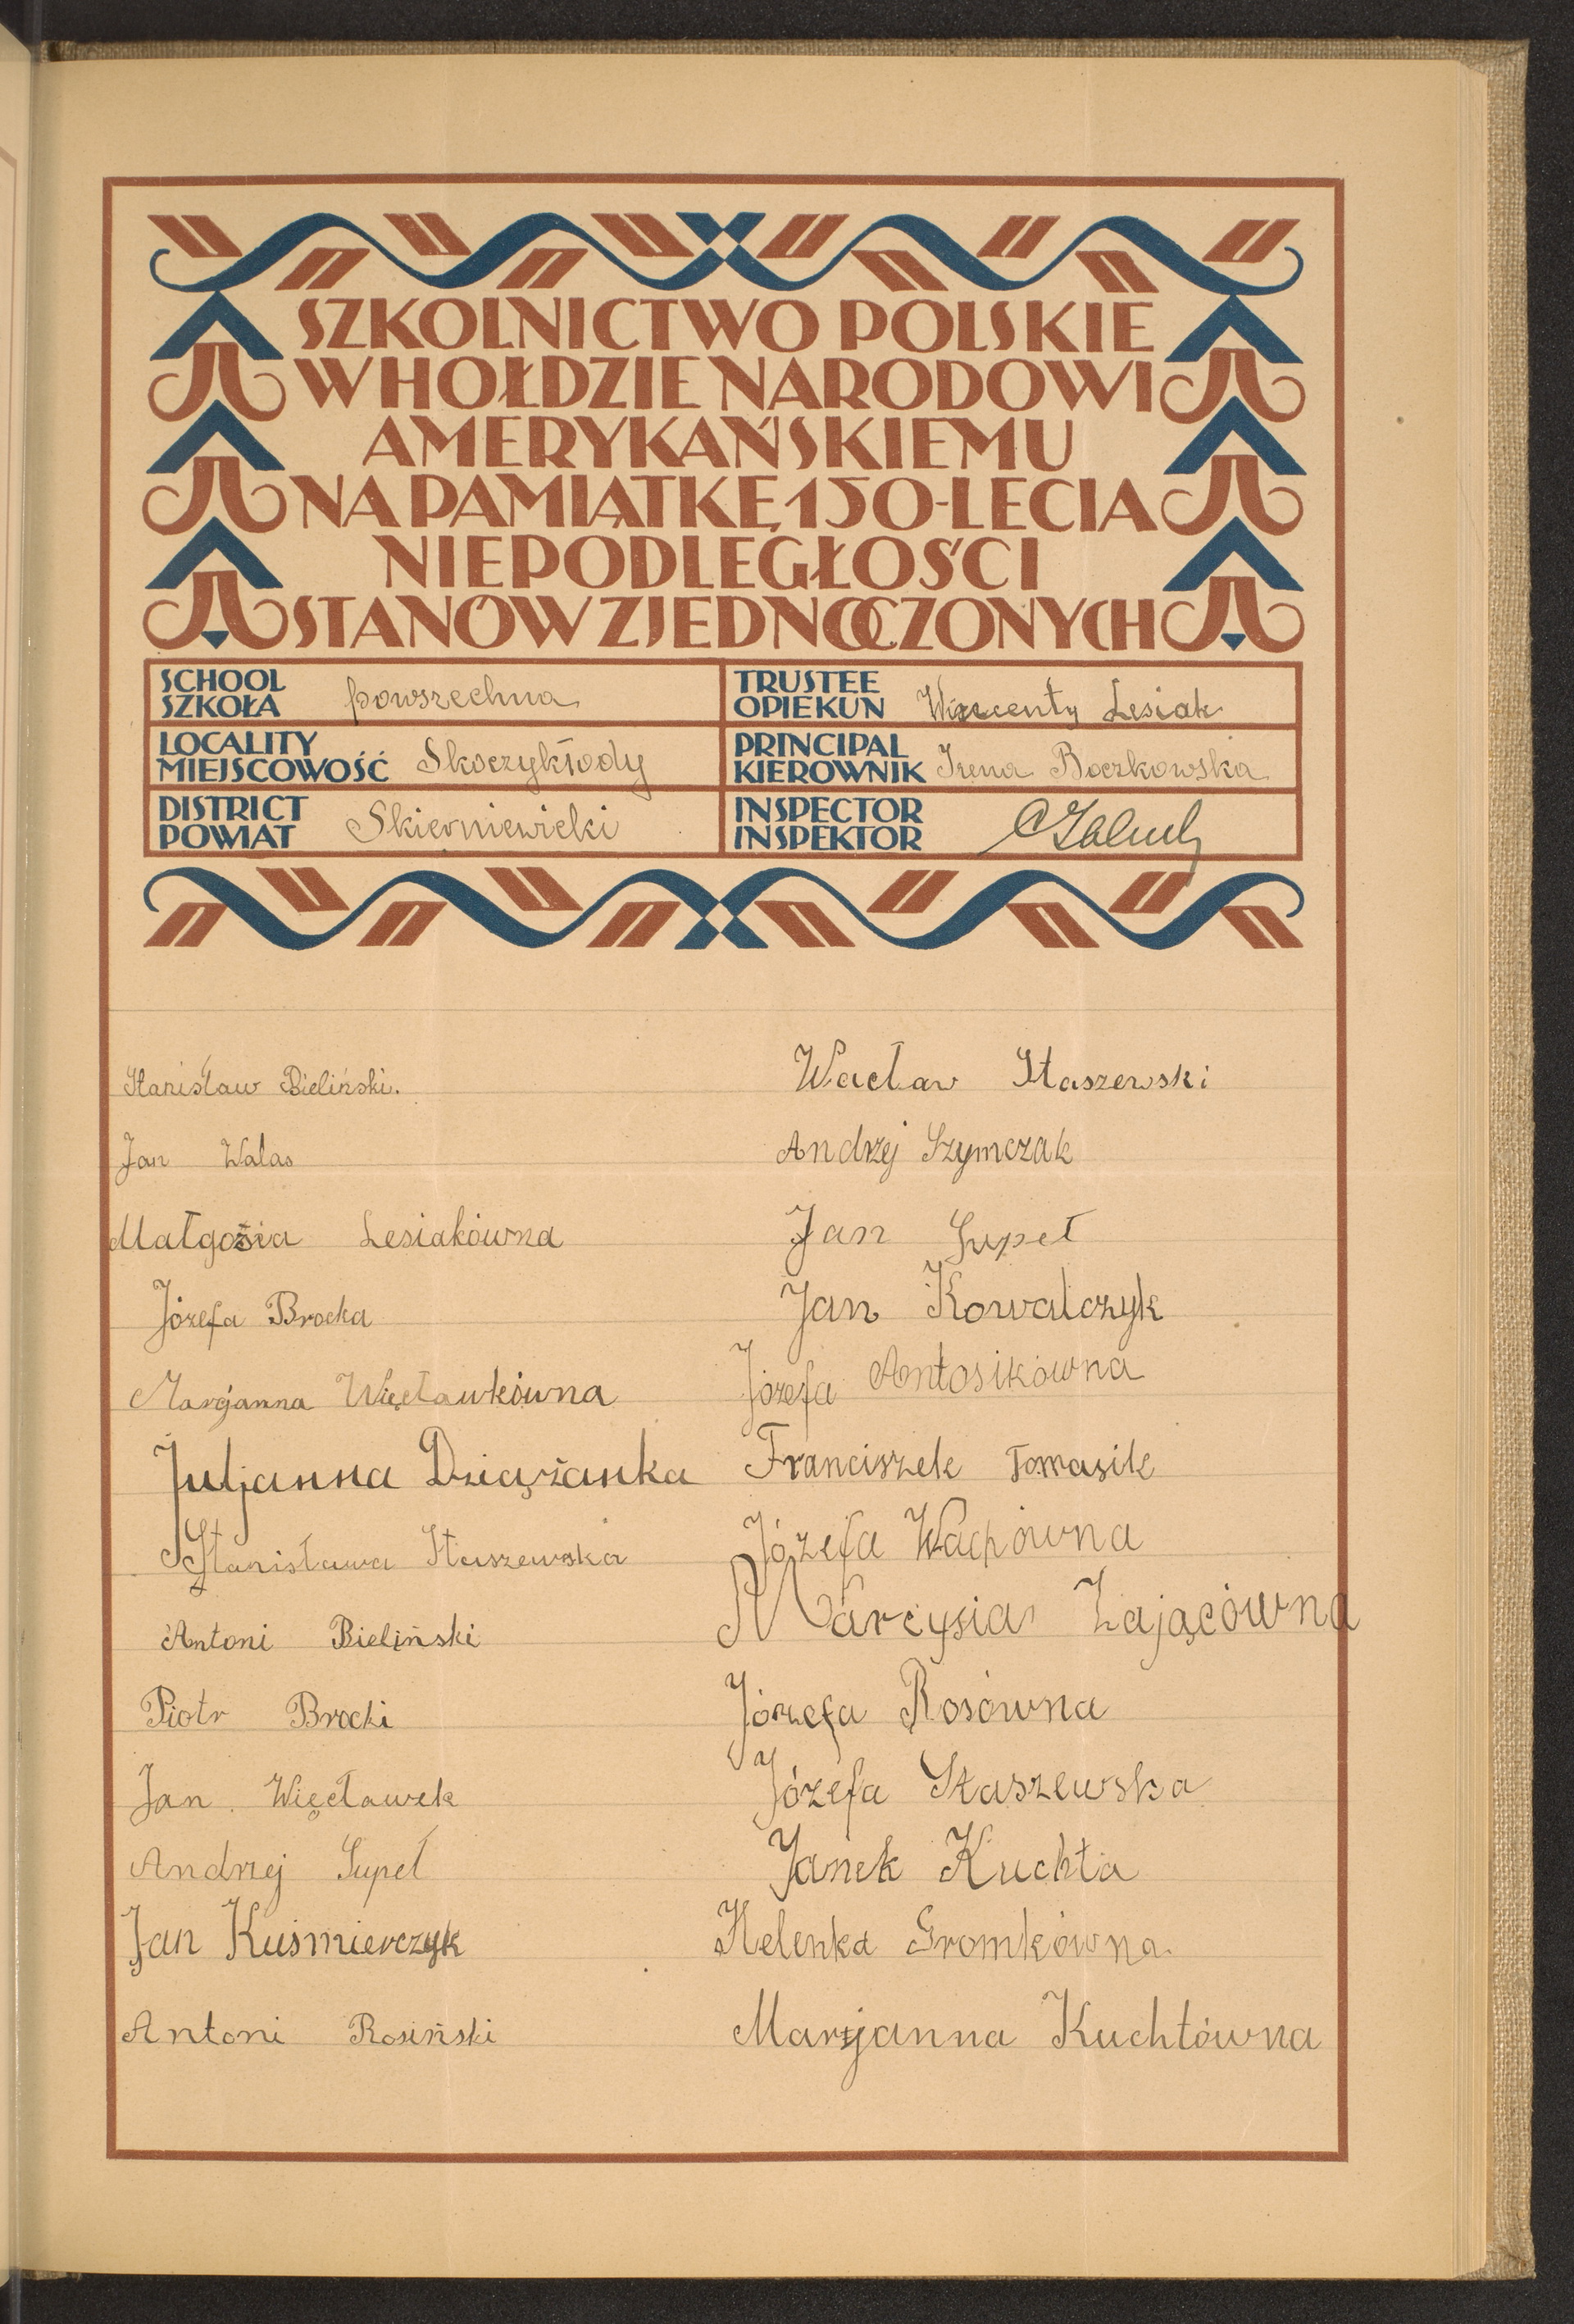 SZKOLNICTWO POLSKIE
W HOŁDZIE NARODOWI
AMERYKAŃSKIEMU
NA PAMIĄTKĘ 150-LECIA
NIEPODLEGŁOŚCI
STANÓW ZJEDNOCZONYCH
SCHOOL
SZKOŁA powszechna
TRUSTEE
OPIEKUN Wincenty Lesiak
LOCALITY
MIEJSCOWOŚĆ Skoczykłody
PRINCIPAL
KIEROWNIK Irena Boczkowska
DISTRICT
POWIAT Skierniewicki
INSPECTOR
INSPEKTOR
Stanisław Bieliński.
Jan Walas
Małgosia Lesiakówna
Józefa Brocka
Marjanna Więcławkówna
Juljanna Dziążanka
Stanisława Staszewska
Antoni Bieliński
Piotr Brocki
Jan Więcławek
Andrzej Supeł
Jan Kuśmierczyk
Antoni Rosiński
Wacław Staszewski
Andrzej Szymczak
Jan Supeł
Jan Kowalczyk
Józefa Antosikówna
Franciszek Tomasik
Józefa Wachówna
Marcysia Zającówna
Józefa Rosówna
Józefa Staszewska
Janek Kuchta
Helenka Gromkówna.
Marjanna Kuchtówna